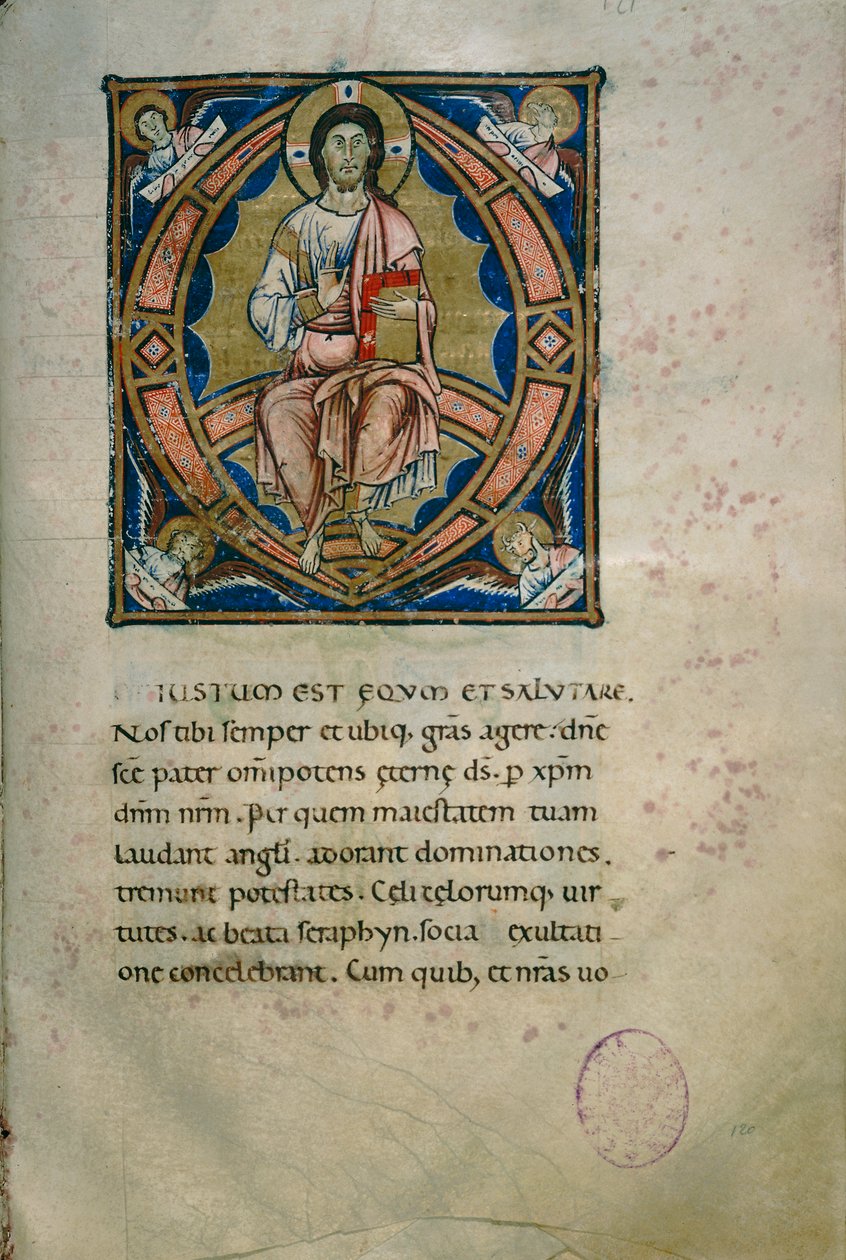 IUSTUM EST ĘQVM ET SALVTARE.
Nos tibi semper et ubiq; gr̄as agere. dn̄e
sc̄e pater om̄ipotens ęternę ds̄. p xp̄m
dn̄m nr̄m. Per quem maiestatem tuam
laudant angli. adorant dominationes.
tremunt potestates. Cęli cęlorumq; uir
tutes. ac beata seraphyn. socia exultati
one concelebrant. Cum quib; et nr̄as uo
120